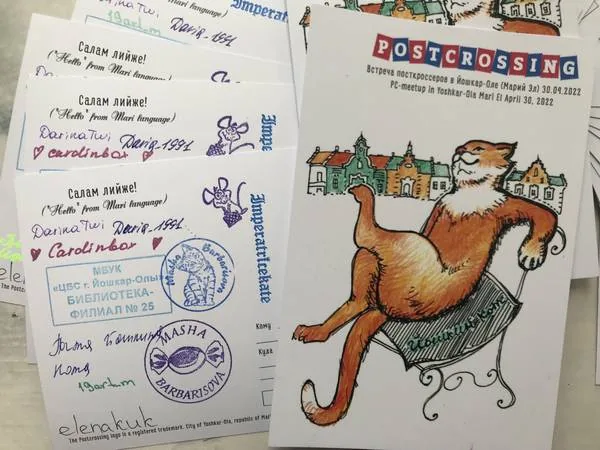 19artum
Салам лийже!
("Hello" from Mari language)
DarinaTwi Daria_1991
Imperatr
Салам лийже!
("Hello" from Mari language)
DarinaTwi Daria_1991
♥ cardinbox ♥
Imperatri
Салам лийже!
("Hello" from Mari language)
DarinaTwi Daria_1991
♥ Cardinbox ♥
Imperatricekate
МБУК
«ЦБС г. Йошкар-Олы»
БИБЛИОТЕКА-
ФИЛИАЛ № 25
Masha Barbarisova
Кому
Куда
19artum
MASHA
BARBARISOVA
elenakuk
The Postcrossing logo is a registered trademark. City of Yoshkar-Ola, republic of Ma
elena
The Postcros
POSTCROSSING
Встреча посткроссеров в Йошкар-Оле (Марий Эл) 30.04.2022
PC-meetup in Yoshkar-Ola Mari El April 30, 2022